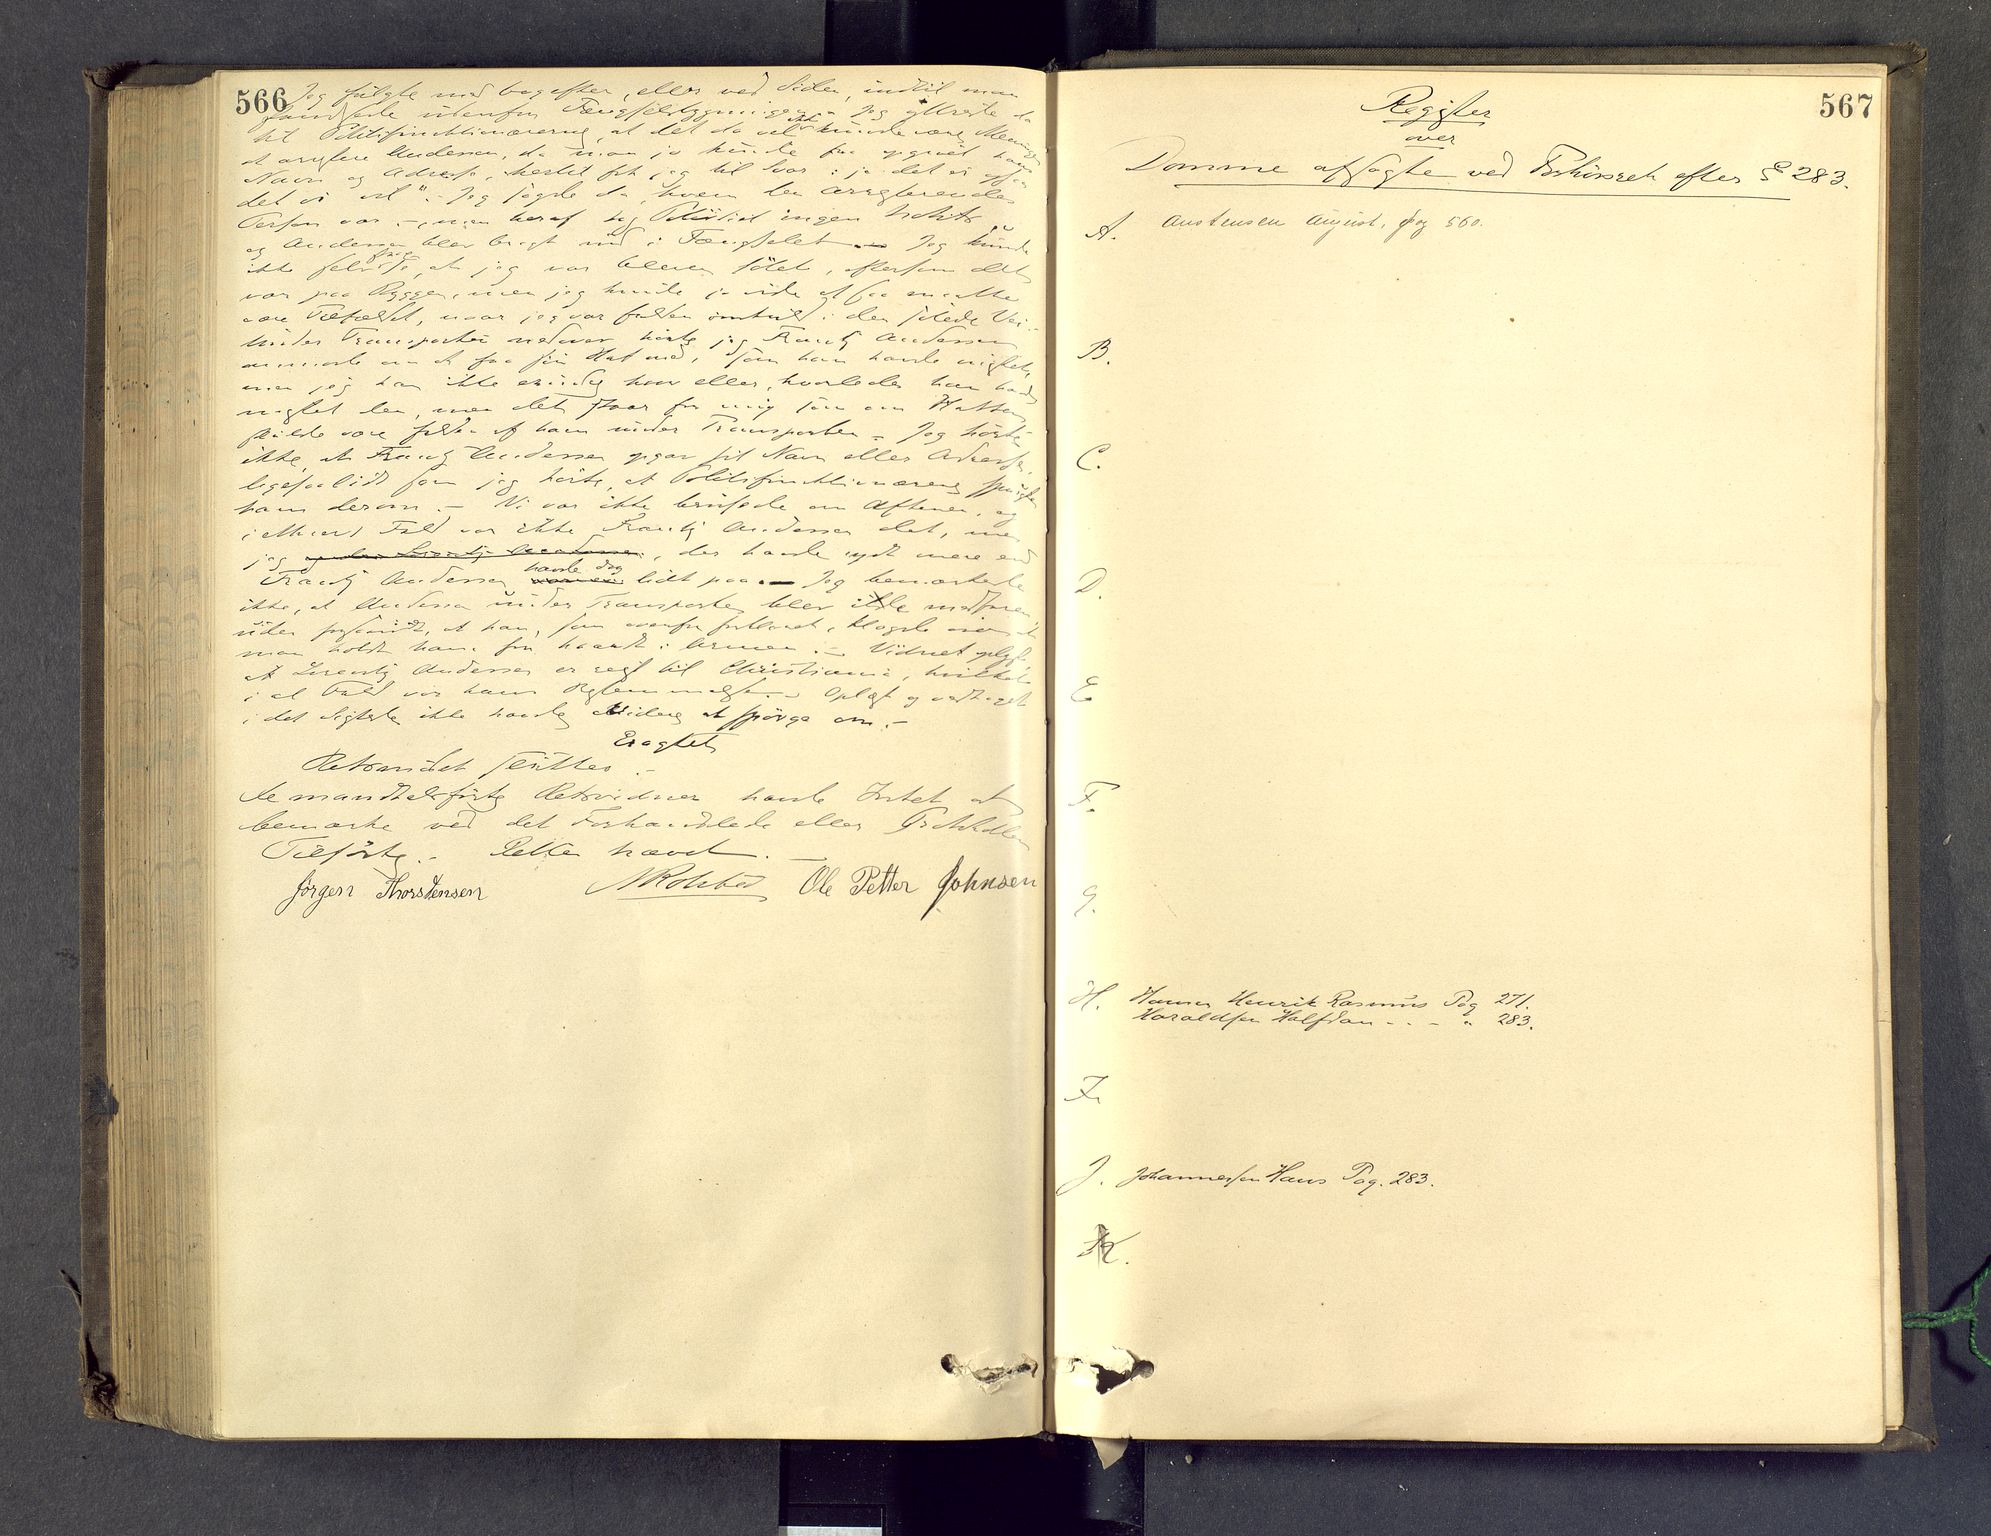 566
Jeg fulgte med bagefter, eller ved Siden, indtil man
standsede udenfor Fængselsbygningen. Jeg yttrede da
til Politifunktionærerne, at det da vel ikke kunde være Meningen
at arrestere Andersen, da man jo kunde faa opgivet hans
Navn og Adresse, hertil fik jeg til Svar: ja det
det vi vil". Jeg sagde da, hvem den arresterende
Person var, men heraf tog Politiet ingen Notits,
og Andersen blev bragt ind i Fængselet. Jeg kunde
ikke selv se, at jeg var bleven sølet, eftersom det
var paa Ryggen, men jeg kunde jo vide at saa maatte
være Tilfældet, naar jeg var falden omkuld i den sølede Vei.
Under Transporten nedover hørte jeg Frantz Andersen
anmode om at faa sin Hat med, som han havde mistet,
men jeg kan ikke erindre hvor eller hvorledes han havde
mistet den, men det staar for mig som om Hatten
skulde være falden af ham under Transporten. Jeg hørte
ikke, at Frantz Andersen opgav sit Navn eller Adresse,
ligesaalidt som jeg hørte, at Politifunktionærerne spurgte
ham derom. Vi var ikke berusede om Aftenen, og
i ethvert Fald var ikke Frantz Andersen det, men
jeg, der havde nydt mere end
Frantz Andersen havde dog lidt paa. Jeg bemærkede
ikke, at Andersen under Transporten blev ilde medfaren
uden forsaavidt, at han, som ovenfor forklaret, klagede over at
man holdt ham for haardt i Armen. Vidnet oplyste
at Lorentz Andersen er reist til Christiania, hvilket
i al Fald var hans Bestemmelse. Oplæst og vedtaget
i det Sigtede ikke havde Videre at spørge om.
Eragtet
Retsmødet sluttes.
De mandtalsførte Retsvidner havde Intet at
bemærke ved det Forhandlede eller Protokollen
Tilførte. Retten hævet.
Jørgen Thorstensen Ole Petter Johnsen
567
Register
over
Domme afsagte ved Forhørsret efter § 283.
A. Austensen August, pag 560.
B.
C.
D.
E
F.
G.
H. Hansen Henrik Rasmus Pag 271.
Haraldsen Halfdan - - - " 283.
I.
J. Johannessen Hans Pag. 283.
K.